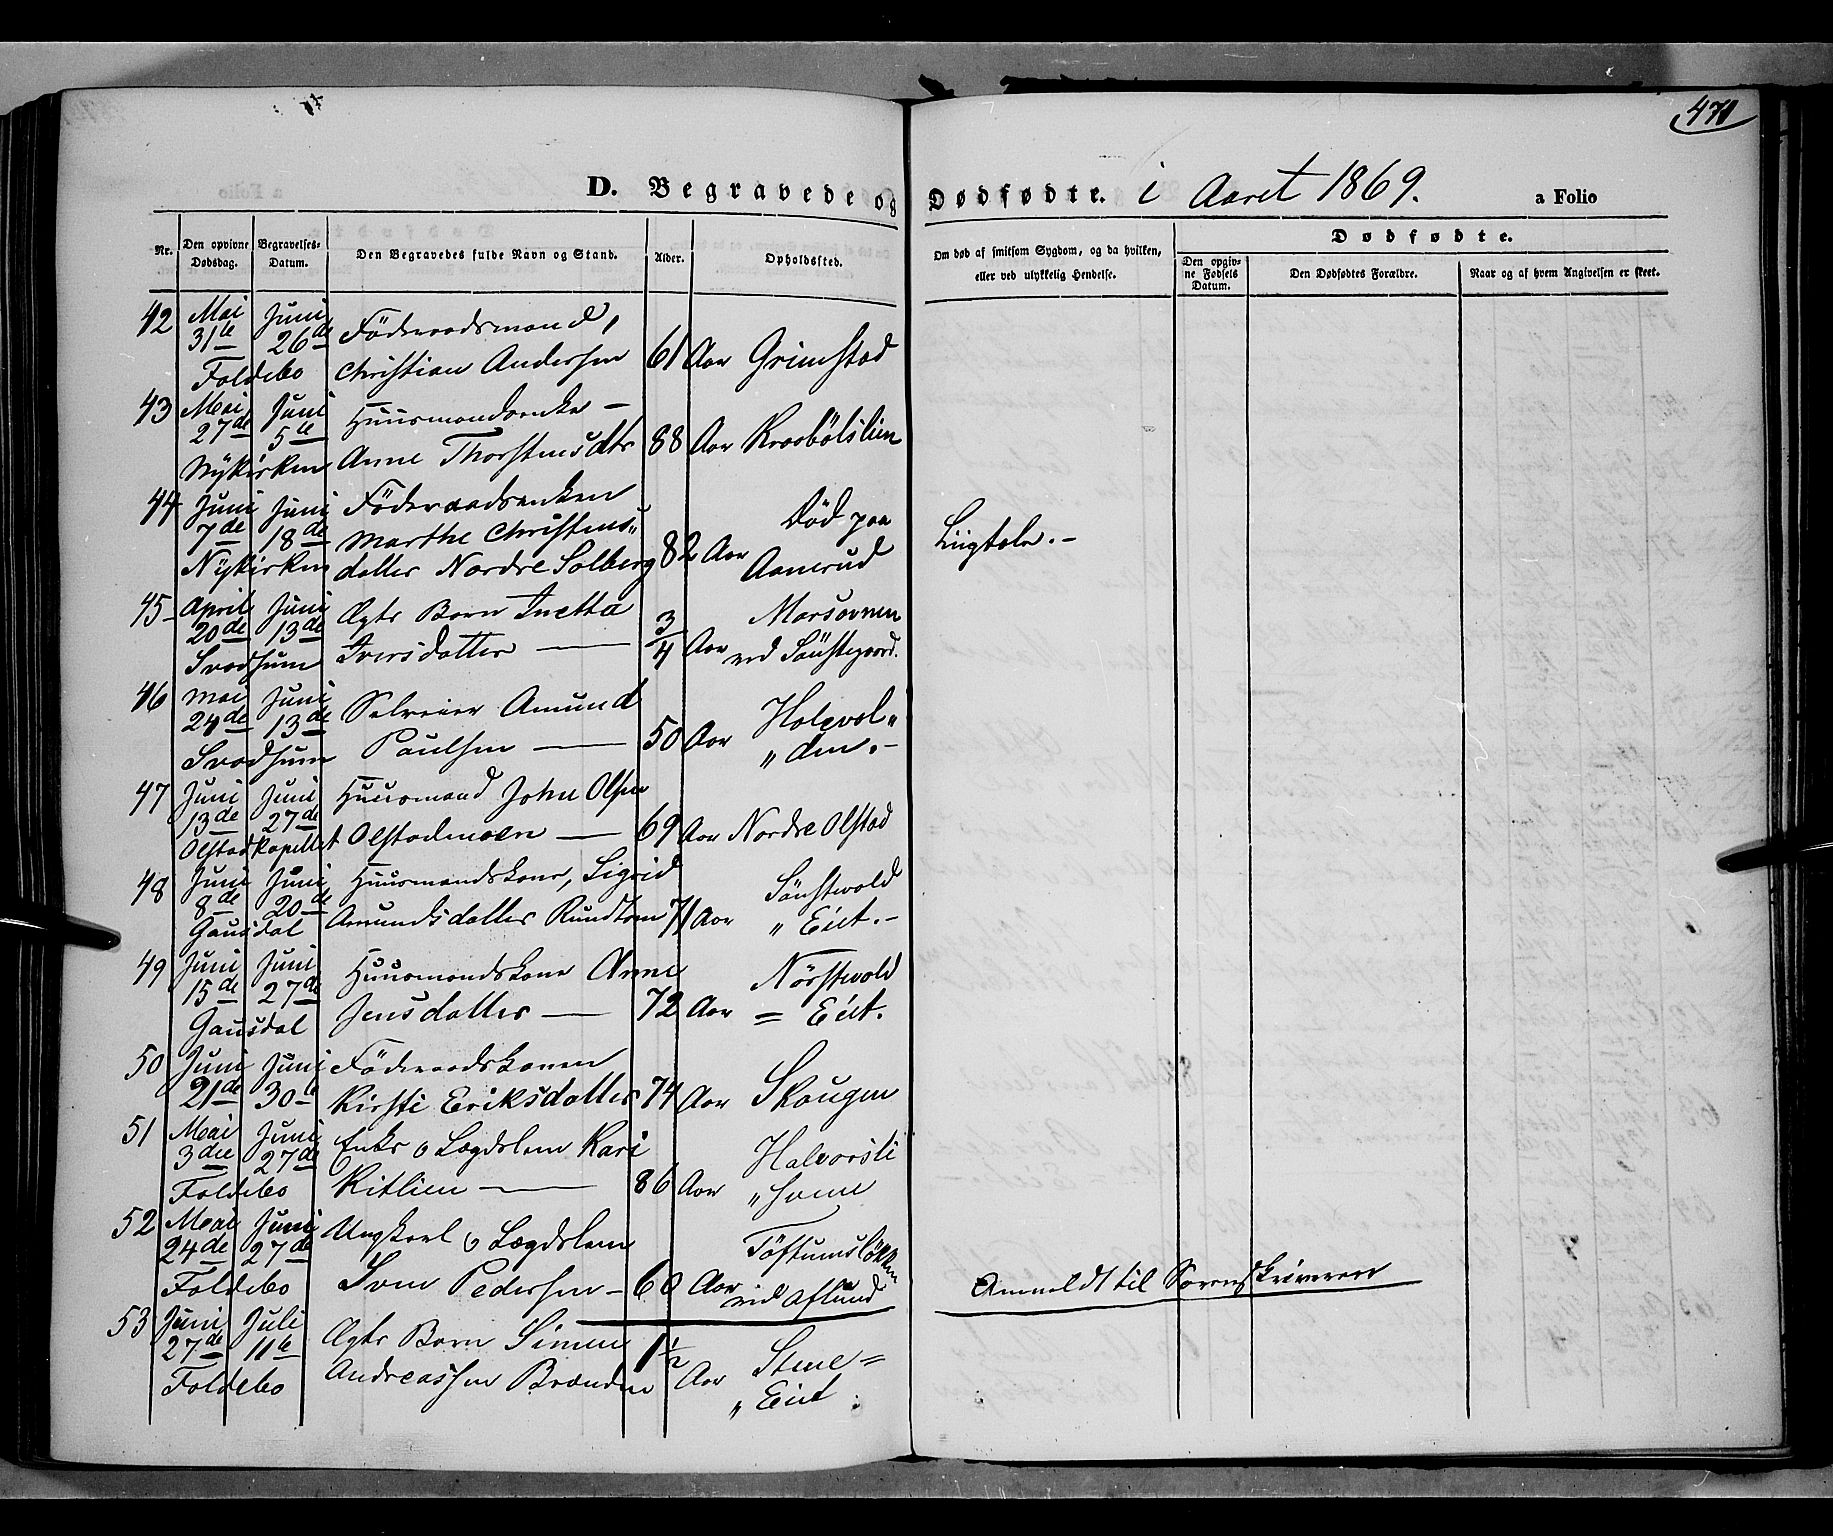 471
D. Begravede og Dødfødte. i Aaret 1869. a Folio
Nr. Den opgivne Dødsdag. Begravelses-Datum. Den Begravedes fulde Navn og Stand. Alder. Opholdssted. Om død af smitsom Sygdom, og da hvilken, eller ved ulykkelig Hendelse.
Dødfødte.
Den opgivne Fødsels Datum. Den Dødfødtes Forældre. Naar og af hvem Angivelsen er skeet.
42 Mai Juni Föderaadsmand,
31te 26de Christian Andersen 61 Aar Grimstad
Foldebo
43 Mai Juni Huusmandsenke –
27de 5te Anne Thorstensdtr 88 Aar Kraabölslien
Nykirken
44 Juni Juni Föderaadsenken
7de 18de Marthe Christens„ 82 Aar Död paa Liigtale. –
Nykirken datter Nordre Solberg Aamrud
45 April Juni Ægte Barn Inetta
20de 13de Iversdatter — 3/4 Aar Morsovnen
Svadsum ved Sönstegaard.
46 Mai Juni Selveier Amund
24de 13de Paulsen — 50 Aar Holsvol„
Svadsum „den. –
47 Juni Juni Huusmand John Olsen
13de 27de Olstadmoen — 69 Aar Nordre Olstad
Olstadkapellet
48 Juni Juni Huusmandskone, Sigrid
8de 20de Amundsdatter Rundtom 71 Aar Sönstevold
Gausdal „Eiet. –
49 Juni Juni Huusmandskone Anne
15de 27de Jensdatter — 72 Aar Nörstevold
Gausdal = Eiet.
50 Juni Juni Föderaadskonen
21de 30te Kirsti Eriksdatter 74 Aar Skougen
51 Mai Juni Enke o Lægdslem Kari
3die 27de Kitlien — 86 Aar Halvorsli
Foldebo
52 Mai Juni Ungkarl o Lægdslem
24de 27de Sven Pedersen – 60 Aar Töftumslökken
Foldebo ved Aflund Anmeldt til Sorenskriveren
53 Juni Juli Ægte Barn Simen
27de 11te Andreassen Brænden 1 1/2 Aar Stene =
Foldebo „Eiet